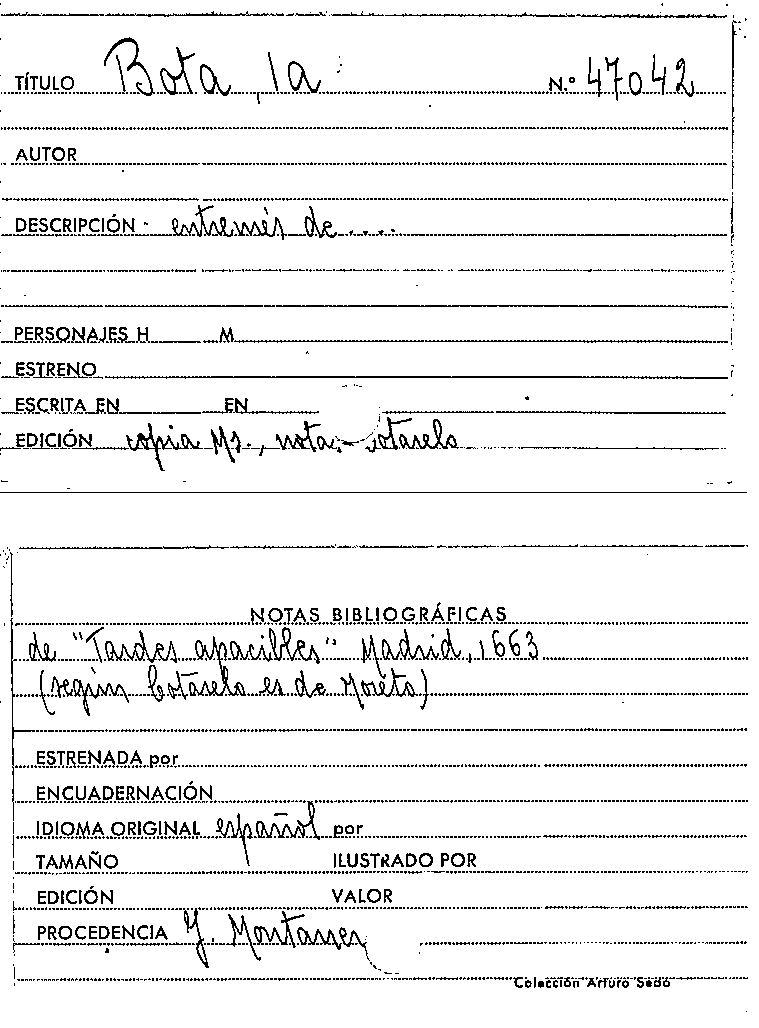 TÍTULO Bota, la N.º 47042
AUTOR
DESCRIPCIÓN entremés de....
PERSONAJES H M
ESTRENO
ESCRITA EN EN
EDICIÓN copia Ms., notas Cotarelo
NOTAS BIBLIOGRÁFICAS
de "Tardes apacibles" Madrid, 1663
(según Cotarelo es de Moreto)
ESTRENADA por
ENCUADERNACIÓN
IDIOMA ORIGINAL español por
TAMAÑO ILUSTRADO POR
EDICIÓN VALOR
PROCEDENCIA J. Montaner
Colección Arturo Sedó